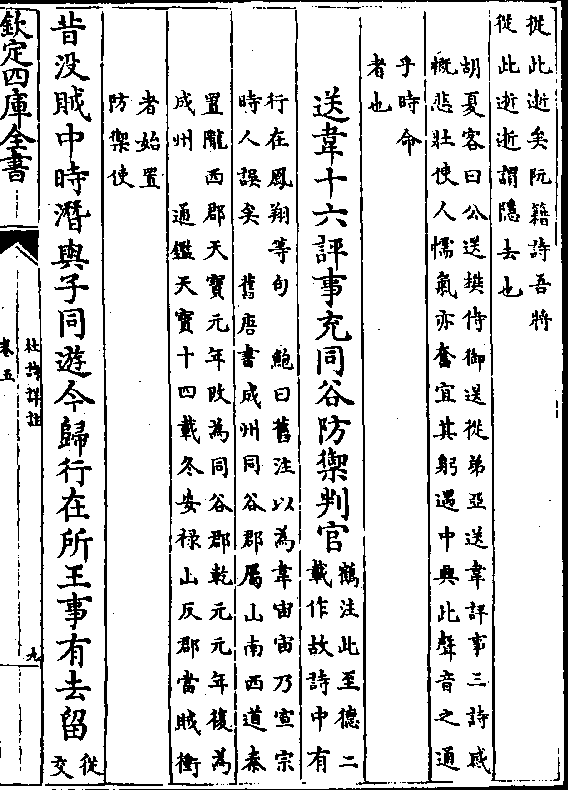 從此逝矣阮籍詩吾將
從此逝逝謂隱去也
胡夏客曰公送樊侍御送從弟亞送韋評事三詩感
慨悲壯使人懦氣亦奮宜其躬遇中興此聲音之通
乎時命
者也
送韋十六評事充同谷防禦判官
鶴注此至德二
載作故詩中有
行在鳳翔等句 鮑曰舊注以為韋宙宙乃宣宗
時人誤矣 舊唐書成州同谷郡屬山南西道秦
置隴西郡天寶元年改為同谷郡乾元元年復為
成州 通鑑天寶十四載冬安祿山反郡當賊衝
者始置
防禦使
昔没賊中時潛與子同遊今歸行在所王事有去留
從
交
欽定四庫全書
杜詩詳註
卷五
九